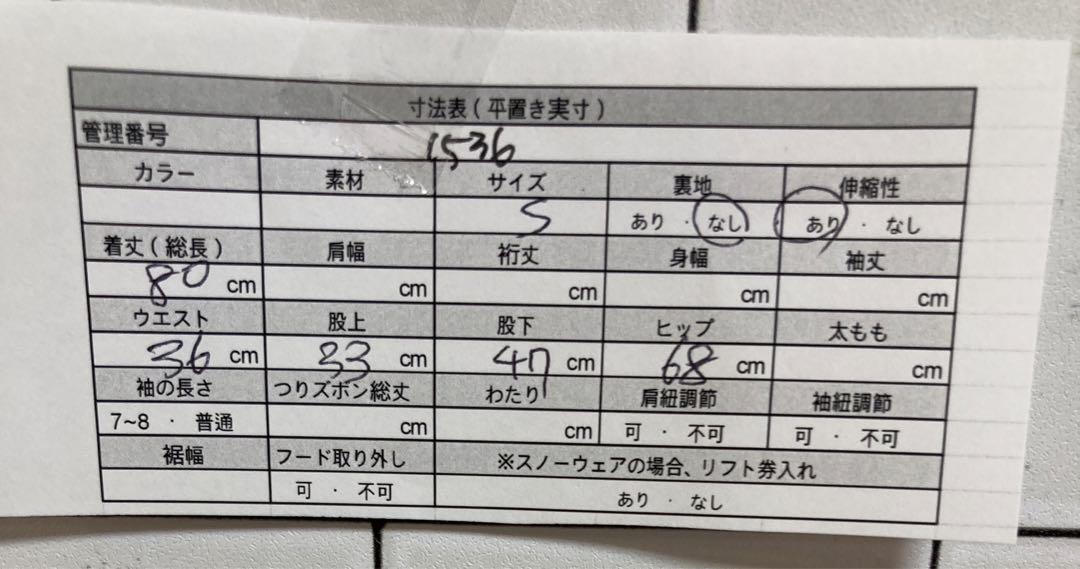 寸法表(平置き実寸)
管理番号 1536
カラー 素材 サイズ 裏地 伸縮性
S あり ・ なし あり ・ なし
着丈(総長) 肩幅 裄丈 身幅 袖丈
80 cm cm cm cm cm
ウエスト 股上 股下 ヒップ 太もも
36 cm 33 cm 47 cm 68 cm cm
袖の長さ つりズボン総丈 わたり 肩紐調節 袖紐調節
7~8 ・ 普通 cm cm 可 ・ 不可 可 ・ 不可
裾幅 フード取り外し ※スノーウェアの場合、リフト券入れ
可 ・ 不可 あり ・ なし